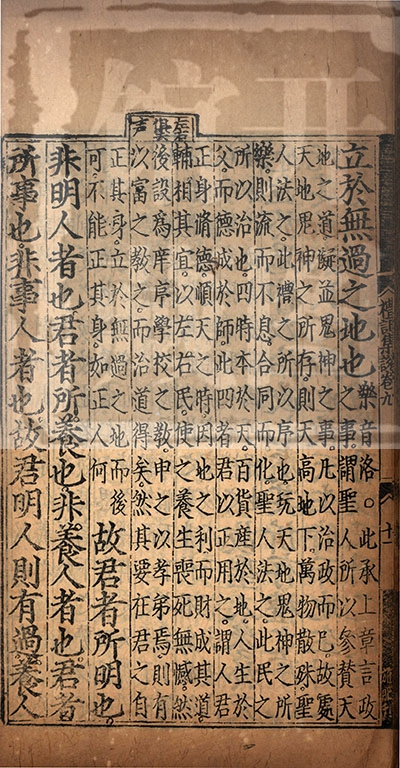 立於無過之地也樂音洛。此承上章言政
之事。謂聖人所以參贊天
地之道儗並鬼神之事。凡以治政而已。故處
天地鬼神之所存。則天高地下。萬物散殊。聖
人法之。此禮之所以序也。玩天地鬼神之所
樂。則流而不息。合同而化。聖人法之。此民之
所以治也。四時本於天。百貨產於地。人生於
父。而德成於師。此四者君以正用之。謂人君
正身脩德。順天之時。因地之利。而財成其道。
輔相其宜。以左右民。使之養生喪死無憾。然
後設爲庠序學校之教。申之以孝弟焉。則有
以富之教之。而治道得矣。然其要在君之自
正其身。立於無過之地而後
可。不能正其身。如正人何
故君者所明也。
非明人者也君者所養也非養人者也君者
所事也。非事人者也故君明人則有過養人
禮記集說卷九
十一